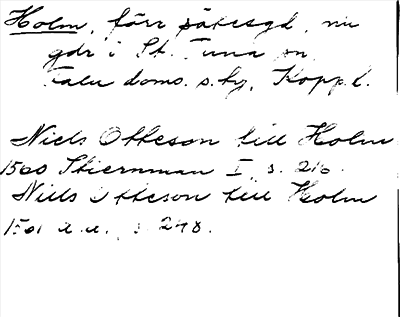 Holm, förr säkesgd, nu
gdr i St. Tuna sn,
Falu doms. s. hy, Kopp. l.
Niels Otteson till Holm
1560 Stiernman I, s. 216.
Niels Otteson till Holm
1561 a. a., s. 248.